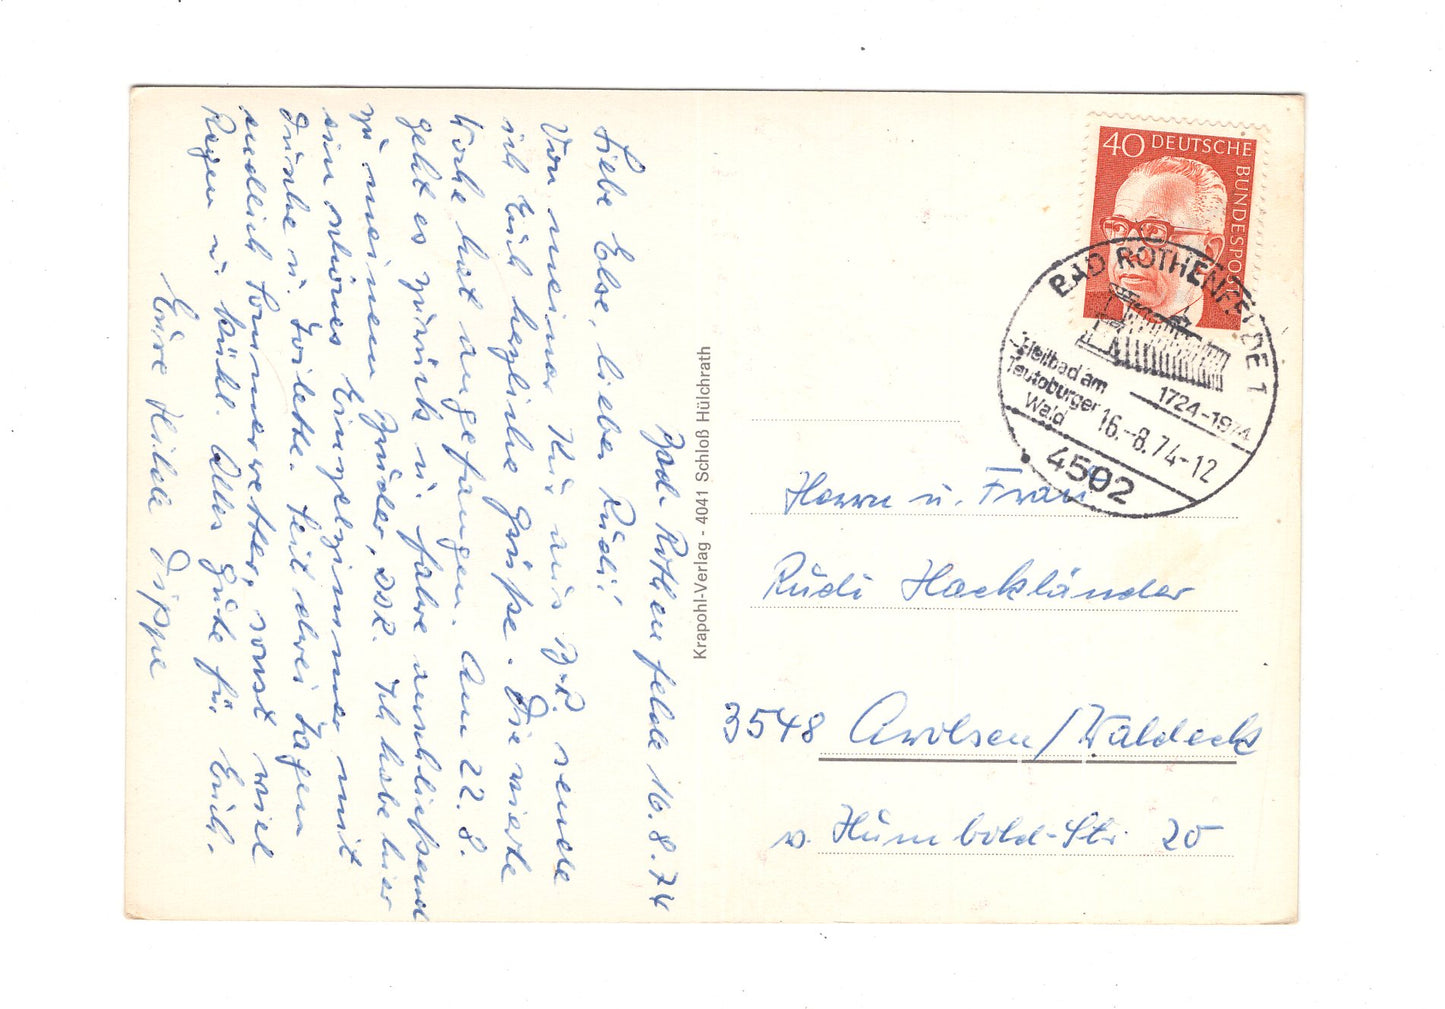 Bad-Rothenfelde 16.8.74
Liebe Else, lieber Rudi!
Von meiner Kur aus B-R. sende
ich Euch herzliche Grüße. Die vierte
Woche hat angefangen. Am 22.8.
geht es zurück u. fahre anschließend
zu meinem Bruder, DDR. Ich habe hier
ein schönes Einzelzimmer mit
Dusche u. Toilette. Seit drei Tagen
endlich Sommerwetter, sonst viel
Regen u. kühl. Alles Gute für Euch.
Eure Hilde Dippe
Krapohl-Verlag - 4041 Schloß Hülchrath
40 DEUTSCHE BUNDESPOST
BAD ROTHENFELDE 1
Heilbad am
Teutoburger
Wald
1724-1974
16.-8.74-12
4502
Herrn u. Frau
Rudi Hackländer
3548 Arolsen/Waldeck
v. Humbold-Str. 20